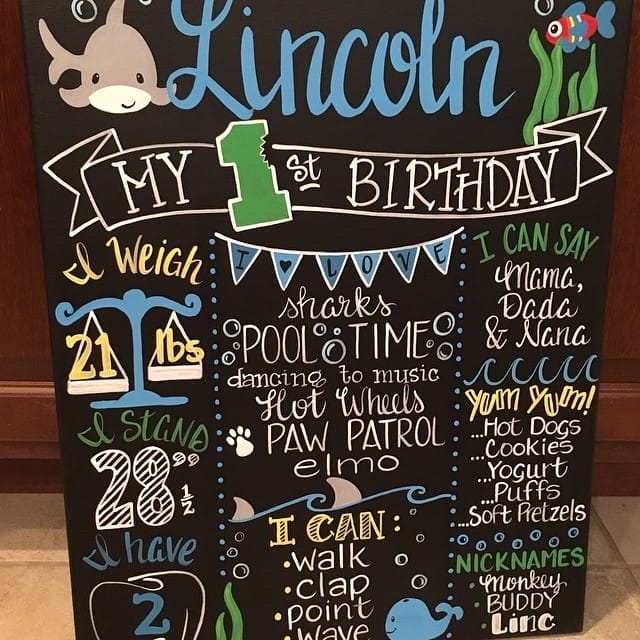 Lincoln
MY 1st BIRTHDAY
I Weigh
21 lbs
I Stand
28 1/2"
I have
2
I ♥ LOVE
sharks
POOL TIME
dancing to music
Hot Wheels
PAW PATROL
elmo
I CAN:
• walk
• clap
• point
• wave
I CAN SAY
Mama,
Dada
& Nana
YUM YUM!
...Hot Dogs
...Cookies
...Yogurt
...Puffs
...Soft Pretzels
NICKNAMES
Monkey
BUDDY
Linc